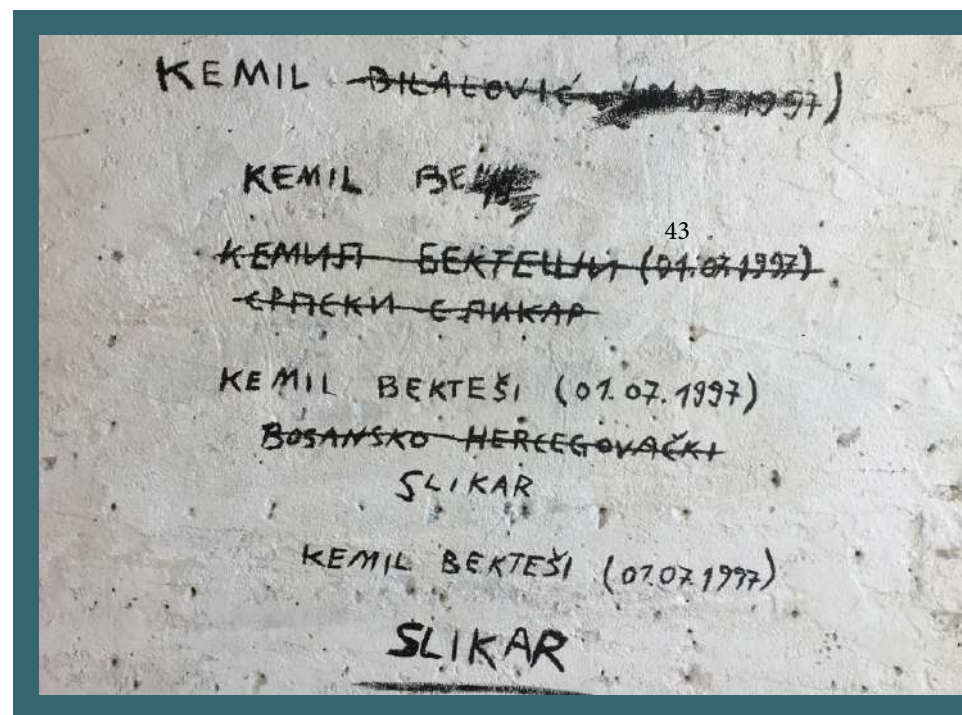 KEMIL BILALOVIĆ (01.07.1997)
KEMIL BE
43
КЕМИЛ БЕКТЕШИ (01.07.1997)
СРПСКИ СЛИКАР
KEMIL BEKTEŠI (01.07.1997)
BOSANSKO HERCEGOVAČKI
SLIKAR
KEMIL BEKTEŠI (01.07.1997)
SLIKAR